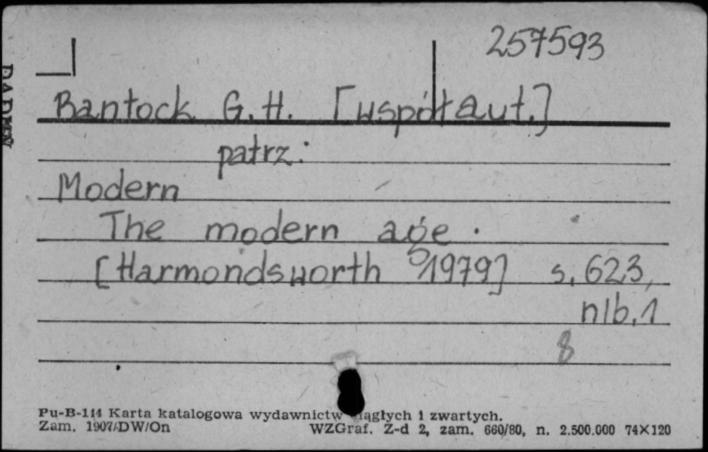 257593
Bantock G. H. [współaut.]
patrz:
Modern
The modern age.
[Harmondsworth 1979] s. 623,
nlb. 1
8
Pu-B-114 Karta katalogowa wydawnictw ciągłych i zwartych.
Zam. 1907/DW/On WZGraf. Z-d 2, zam. 660/80, n. 2.500.000 74×120